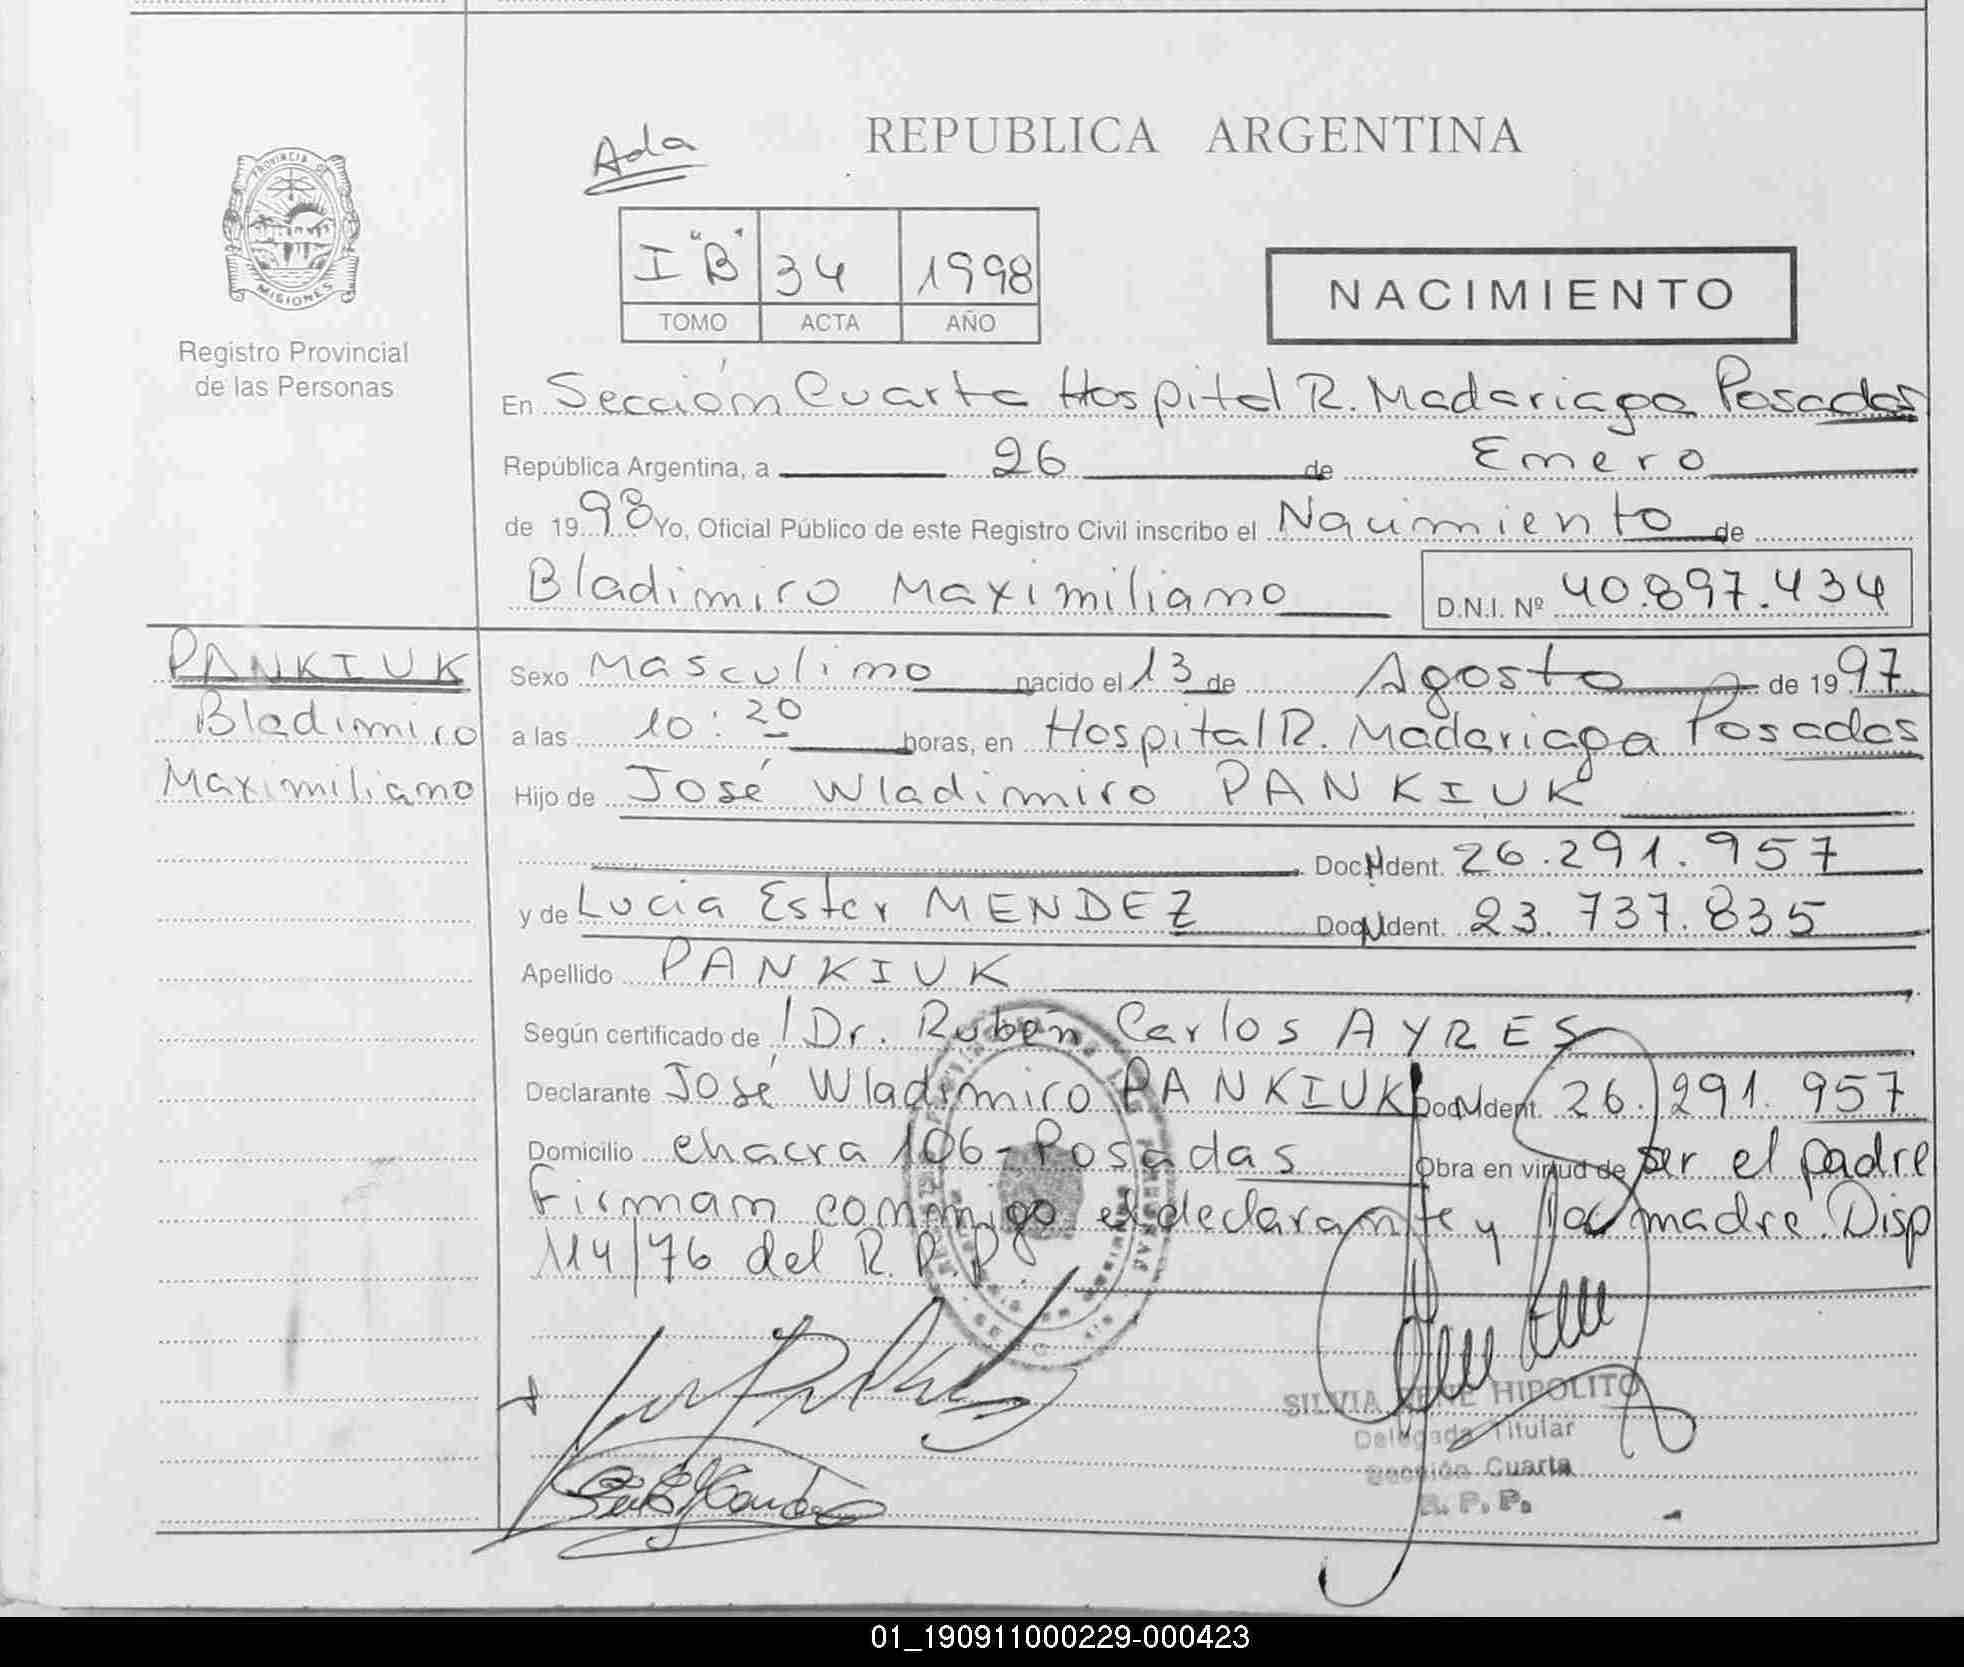 REPUBLICA ARGENTINA
Ada
PROVINCIA DE
MISIONES
I "B" 34 1998
TOMO ACTA AÑO
NACIMIENTO
Registro Provincial
de las Personas
En Sección Cuarta Hospital R. Madariaga Posadas
República Argentina, a 26 de Enero
de 1998 Yo, Oficial Público de este Registro Civil inscribo el Nacimiento de
Bladimiro Maximiliano D.N.I. Nº 40.897.434
PANKIUK
Bladimiro
Maximiliano
Sexo Masculino nacido el 13 de Agosto de 1997
a las 10:20 horas, en Hospital R. Madariaga Posadas
Hijo de José Wladimiro PANKIUK
Doc. Ident. 26.291.957
y de Lucia Ester MENDEZ Doc. Ident. 23.737.835
Apellido PANKIUK
Según certificado de Dr. Rubén Carlos AYRES
Declarante José Wladimiro PANKIUK Doc. Ident. 26.291.957
Domicilio chacra 106 - Posadas Obra en virtud de ser el padre
Firman conmigo el declarante y la madre. Disp
114/76 del R.P.P.
SILVIA IRENE HIPOLITO
Delegada Titular
Sección Cuarta
R. P. P.
01_190911000229-000423